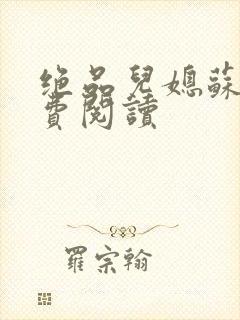 绝品兒媳蘇
費閱讀
羅宗翰